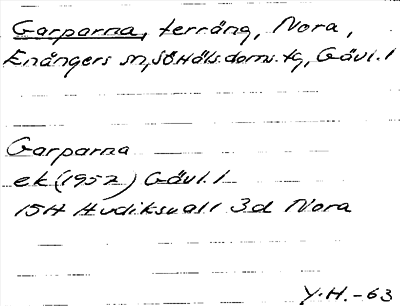 Garparna, terräng, Nora,
Enångers sn, SöHäls.doms.tg, Gävl.l
Garparna
ek (1952) Gävl.l
15H Hudiksvall 3d Nora
Y.H.-63